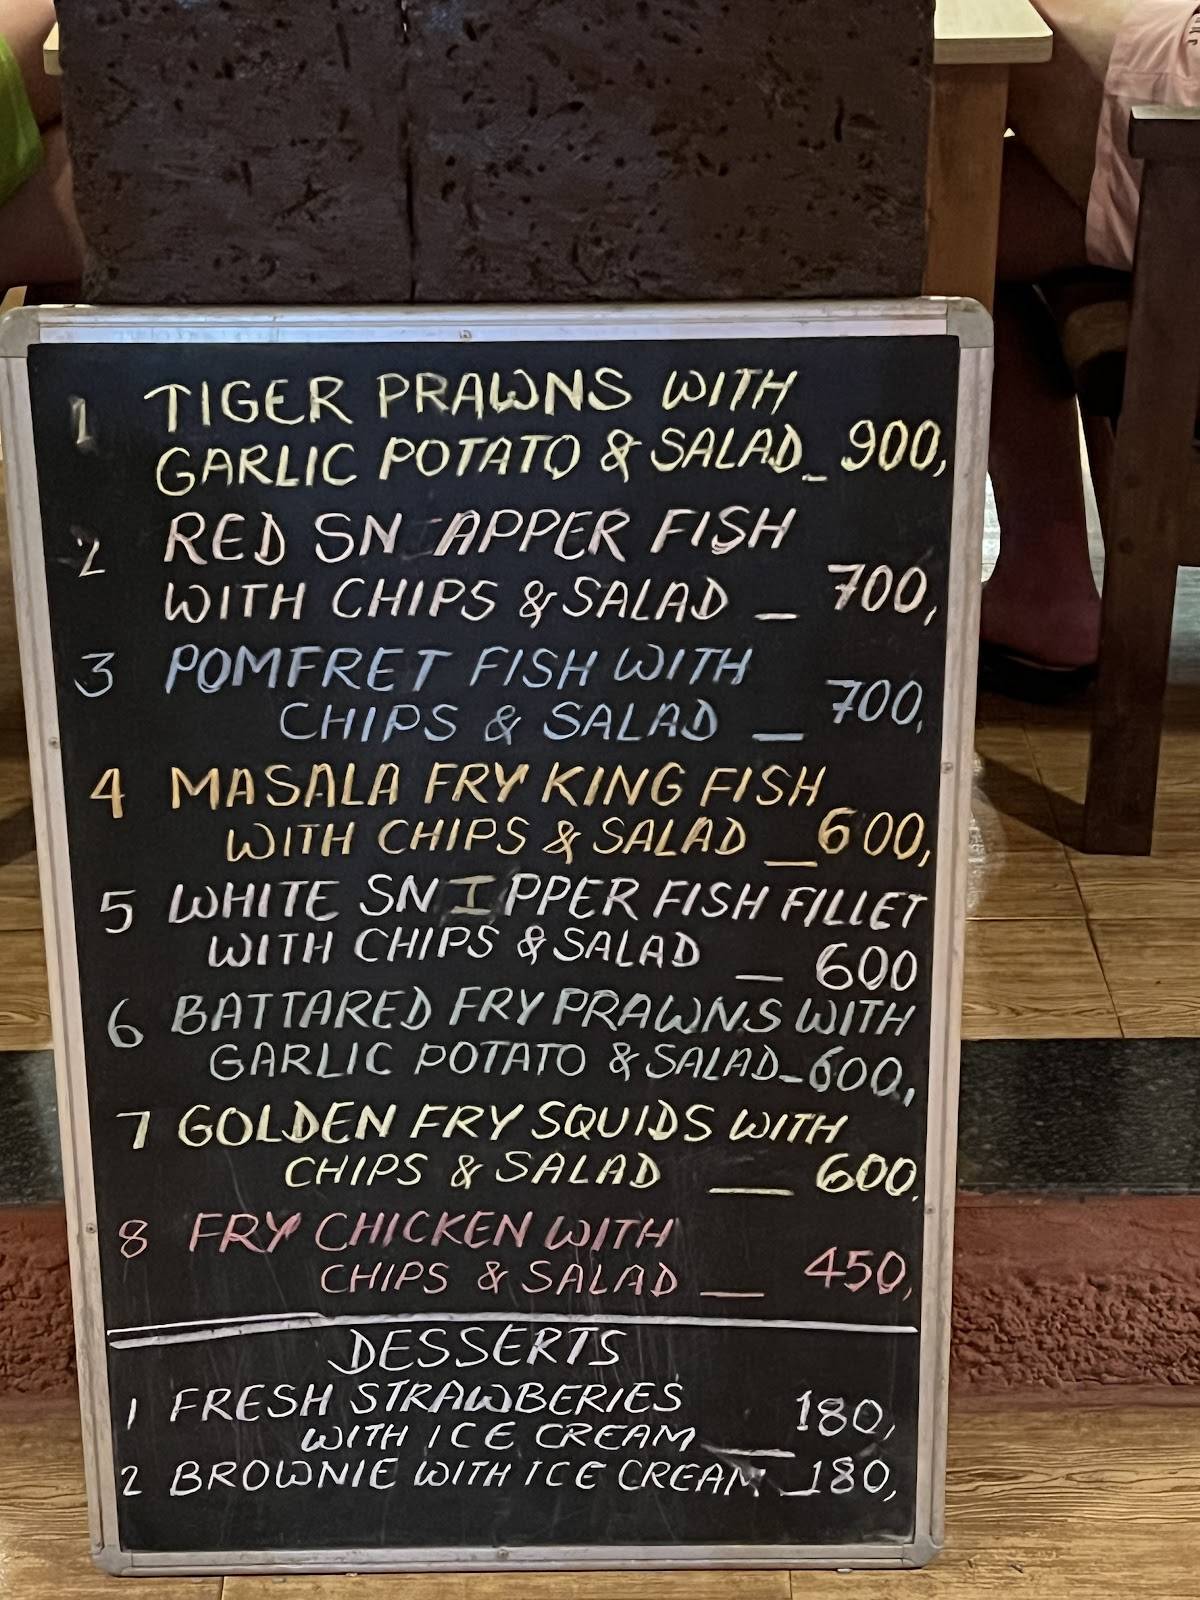 1 TIGER PRAWNS WITH
GARLIC POTATO & SALAD_ 900,
2 RED SN APPER FISH
WITH CHIPS & SALAD _ 700,
3 POMFRET FISH WITH
CHIPS & SALAD _ 700,
4 MASALA FRY KING FISH
WITH CHIPS & SALAD _ 600,
5 WHITE SNIPPER FISH FILLET
WITH CHIPS & SALAD _ 600
6 BATTARED FRY PRAWNS WITH
GARLIC POTATO & SALAD_600,
7 GOLDEN FRY SQUIDS WITH
CHIPS & SALAD _ 600.
8 FRY CHICKEN WITH
CHIPS & SALAD _ 450,
DESSERTS
1 FRESH STRAWBERIES
WITH ICE CREAM _ 180,
2 BROWNIE WITH ICE CREAM _180,